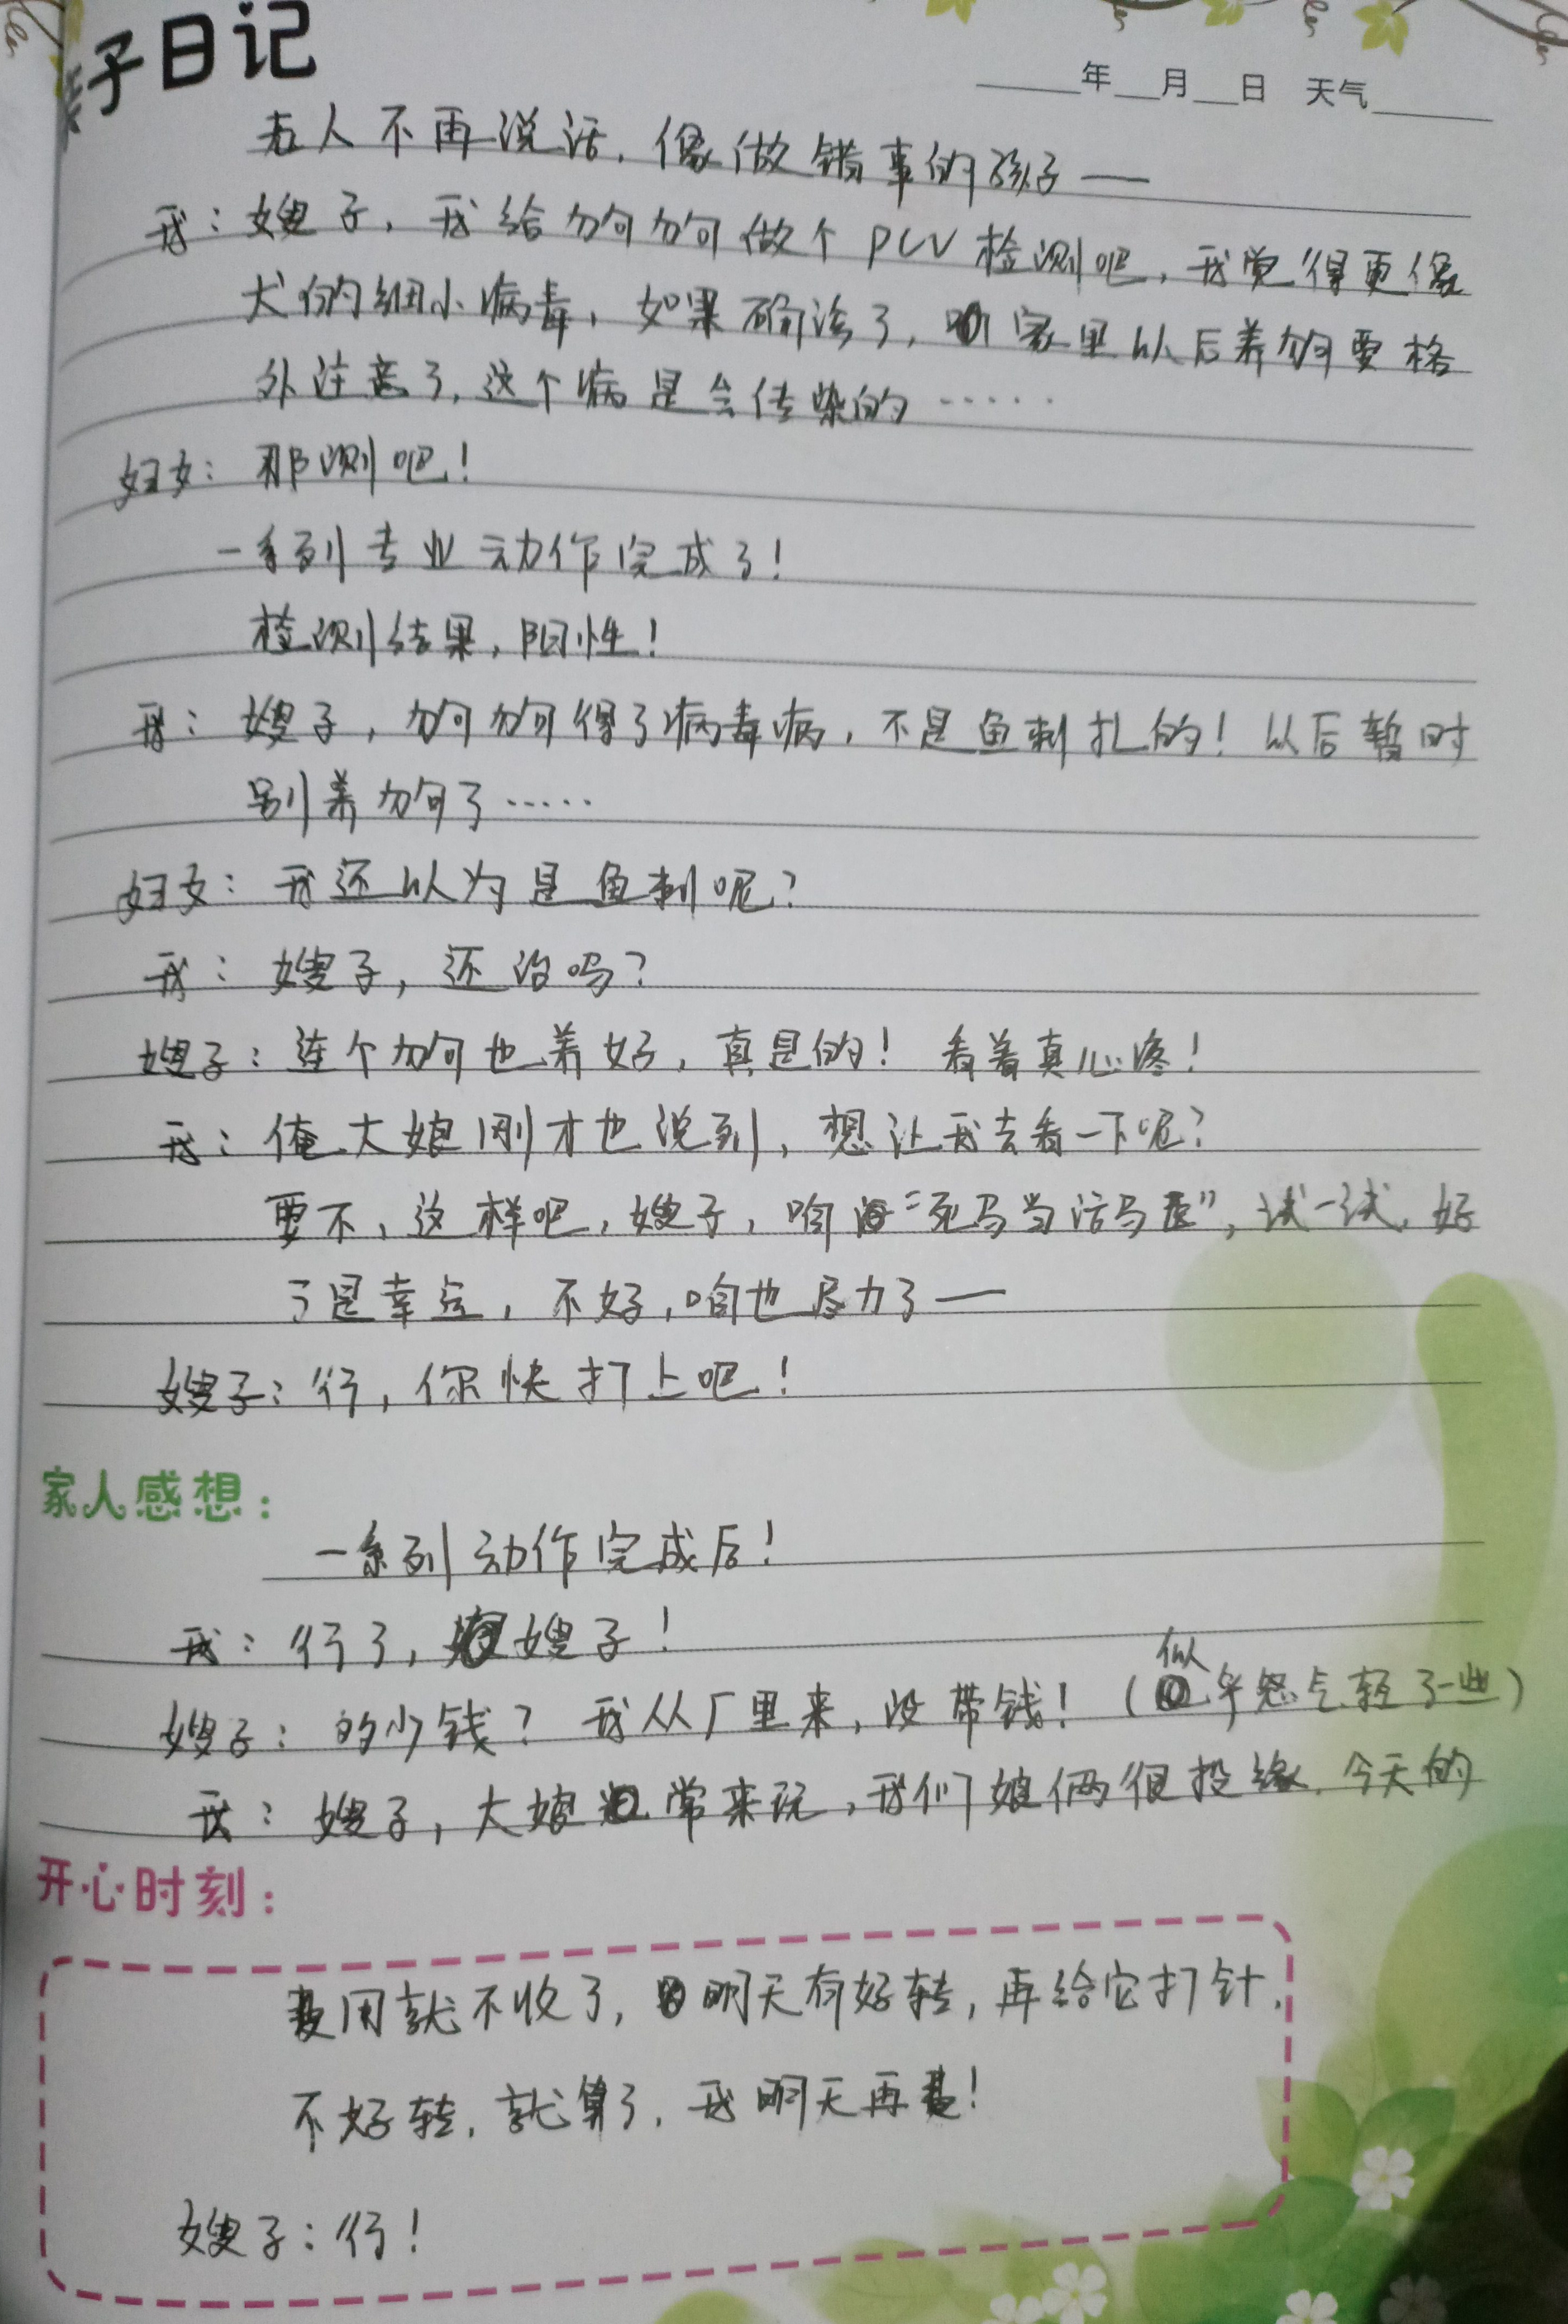 亲子日记
年 月 日 天气
老人不再说话,像做错事的孩子——
我:嫂子,我给狗狗做个PCV检测吧,我觉得更像
犬的细小病毒,如果确诊了,咱家里以后养狗要格
外注意了,这个病是会传染的……
妇女:那测吧!
一系列专业动作完成了!
检测结果,阳性!
我:嫂子,狗狗得了病毒病,不是鱼刺扎的!以后暂时
别养狗了……
妇女:我还以为是鱼刺呢?
我:嫂子,还治吗?
嫂子:连个狗也养好,真是的!看着真心疼!
我:俺大娘刚才也说到,想让我去看一下呢?
要不,这样吧,嫂子,咱“死马当活马医”,试一试,好
了是幸运,不好,咱也尽力了——
嫂子:行,你快打上吧!
家人感想:
一系列动作完成后!
我:行了,嫂子!
嫂子:的少钱?我从厂里来,没带钱!(似乎怒气轻了一些)
我:嫂子,大娘常来玩,我们娘俩很投缘,今天的
开心时刻:
费用就不收了,明天有好转,再给它打针,
不好转,就算了,我明天再来!
嫂子:行!